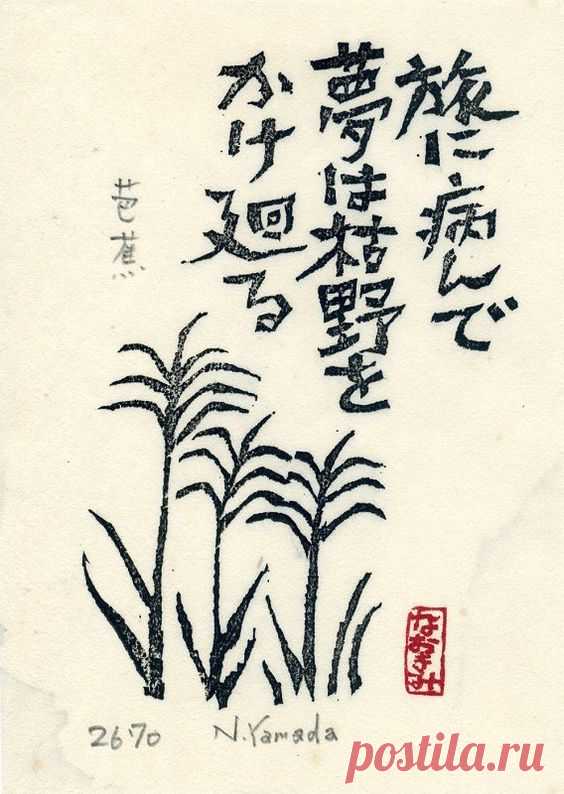 旅に病んで
夢は枯野を
かけ廻る
芭蕉
2670 N.Yamada
postila.ru